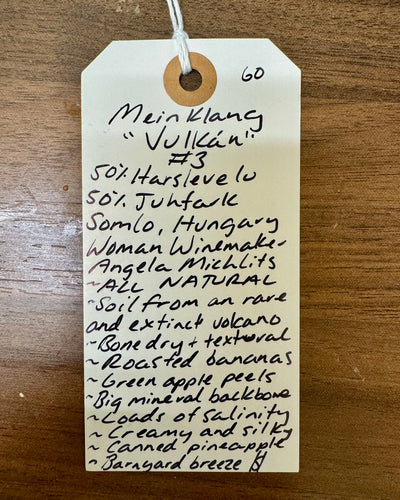 60
Meinklang
"Vulkán"
#3
50% Harslevelu
50% Juhfark
Somlo, Hungary
Woman Winemaker
Angela Michlits
~ALL NATURAL
~Soil from an rare
and extinct volcano
~Bonedry + textural
~Roasted bananas
~Green apple peels
~Big mineral backbone
~Loads of salinity
~Creamy and silky
~Canned pineapple
~Barnyard breeze